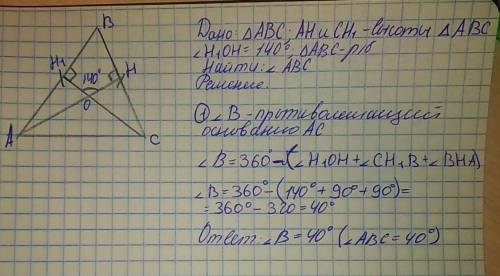 B
H₁
H
140°
O
A
C
Дано: △ABC; AH и CH₁ - высоты △ABC
∠H₁OH = 140°; △ABC - р/б
Найти: ∠ABC
Решение.
① ∠B - противолежащий
основанию AC
∠B = 360° - (∠H₁OH + ∠CH₁B + ∠BHA)
∠B = 360° - (140° + 90° + 90°) =
= 360° - 320 = 40°
Ответ: ∠B = 40° (∠ABC = 40°)